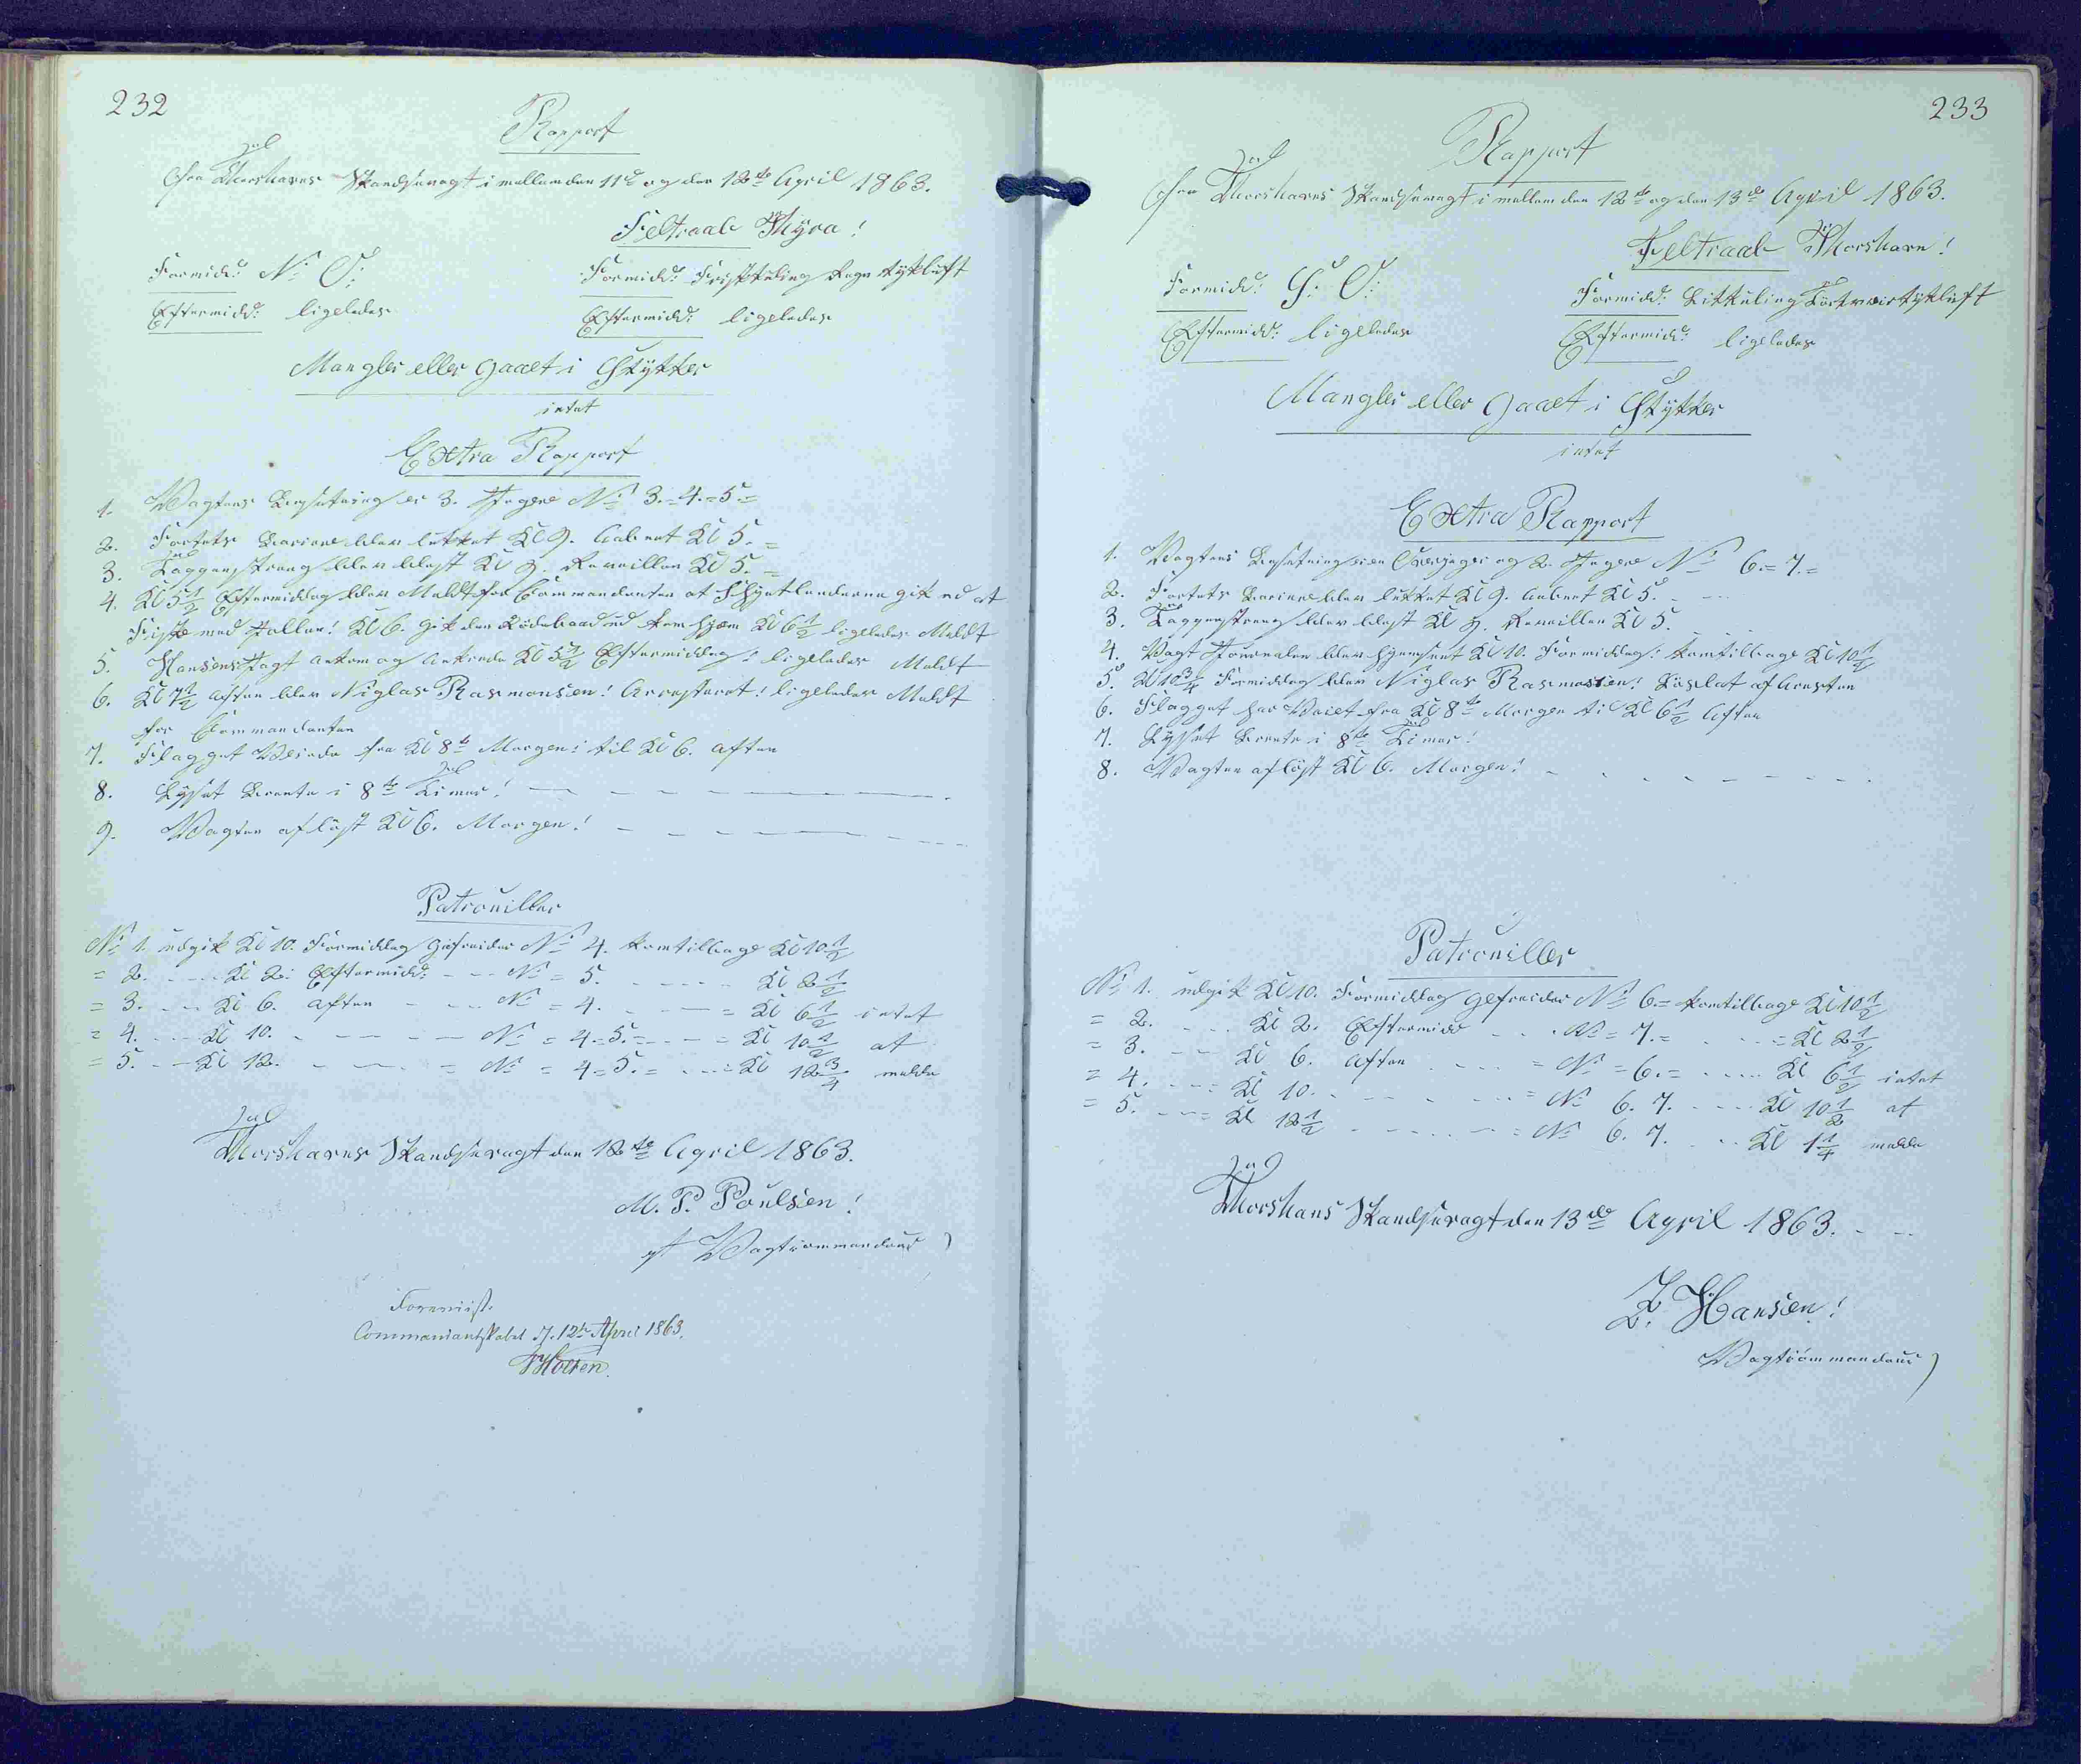 232
Rapport
fra Thorshavns Skandsevagt imellem den 11te og den 12te April 1863.
Feltraab Thyra!
Formidd: N: O:
Formidd: Friskkuling Regn tykluft
Eftermidd: ligeledes
Eftermidd: ligeledes
Mangler eller gaaet i Stykker
intet
Extra Rapport
1. Vagtens Besetning er 3. Jegere No 3.=4.=5.=
2. Fortets Bariere blev lukket Kl 9. Aabnet Kl 5. =
3. Tappenstreng blev blest Kl 9. Reveillen Kl 5. =
4. Kl 5 1/2 Eftermiddag blev Meldt for Commandanten at Shjetlenderne gik ud at
Fiske med Joller! Kl 6. gik den ud kom hjem Kl 6 1/2 ligeledes Meldt
5. Hansens Jagt ankom og ankrede Kl 5 1/2 Eftermiddag! ligeledes Meldt
6. Kl 7 1/2 Aften blev Niglas Rasmousien! Arresteret! ligeledes Meldt
for Commandanten
7. Flagget Veiede fra Kl 8te Morgen: til Kl 6. Aften
8. Lyset Brente i 8te Timer!
9. Vagten aflöst Kl 6. Morgen!
Patrouiller
No 1. udgik Kl 10. Formiddag Gefreider No 4. komtilbage Kl 10 1/2
= 2. Kl 2: Eftermidd: No = 5. Kl 2 1/2
= 3. Kl 6. Aften No = 4. = Kl 6 1/2 intet
= 4. Kl 10. No = 4=5.= = Kl 10 1/2 at
= 5. Kl 12. = No = 4=5.= Kl 12 3/4 melde
Thorshavns Skandsevagt den 12te April 1863.
M. P. Poulsen!
gf Vagtcommandeur
Foreviist.
Commandantskabet d. 12te April 1863.
233
Rapport
fra Thorshavns Skandsevagt imellem den 12te og den 13de April 1863.
Feltraab Thorshavn!
Formidd: S: O:
Formidd: Litkuling Törtveir tykluft
Eftermidd: ligeledes
Eftermidd: ligeledes
Mangler eller Gaaet i Stykker
intet
Extra Rapport
1. Vagtens Besetning er en Overjeger og 2. Jegere No 6.=7.=
2. Fortets Bariere blev lukket Kl 9. Aabnet Kl 5.
3. Tappenstreng blev blest Kl 9. Reveillen Kl 5.
4. Vagt Journalen blev hjemsent Kl 10. Formiddag: komtilbage Kl 10 1/2
5. Kl 10 3/4 Formiddag blev Niglas Rasmosien! Löslat af Aresten
6. Flagget har Veiet fra Kl 8te Morgen til Kl 6 1/2 Aften
7. Lyset Brente i 8te Timer!
8. Vagten aflöst Kl 6. Morgen!
Patrouiller
No 1. udgik Kl 10. Formiddag Gefreider No 6.= komtilbage Kl 10 1/2
= 2. Kl 2. Eftermidd No = 7.= = Kl 2 1/2
= 3. Kl 6. Aften = No = 6.= Kl 6 1/2 intet
= 4. Kl 10. = No 6. 7. Kl 10 1/2 at
= 5. = Kl 12 1/2 = No 6. 7. Kl 1 1/4 melde
Thorshans Skandsevagt den 13de April 1863.
Z. Hansen!
Vagtcommandeur